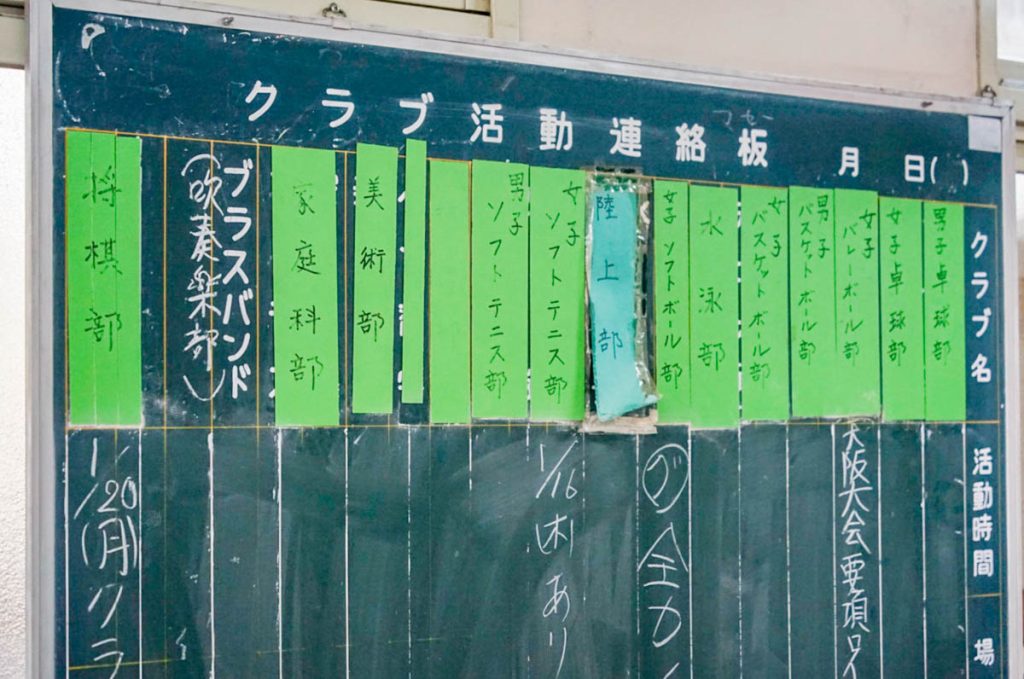 クラブ活動連絡板 月 日( )
クラブ名
活動時間
場
男子卓球部
女子卓球部
女子バレーボール部
大阪大会要項
男子バスケットボール部
女子バスケットボール部
水泳部
女子ソフトボール部
グ
全カ
陸上部
女子ソフトテニス部
1/16(木)あり
男子ソフトテニス部
美術部
家庭科部
ブラスバンド
(吹奏楽部)
将棋部
1/20(月)クラ